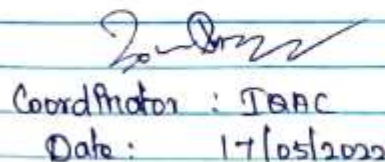 Coordinator : IQAC
Date : 17/05/2022